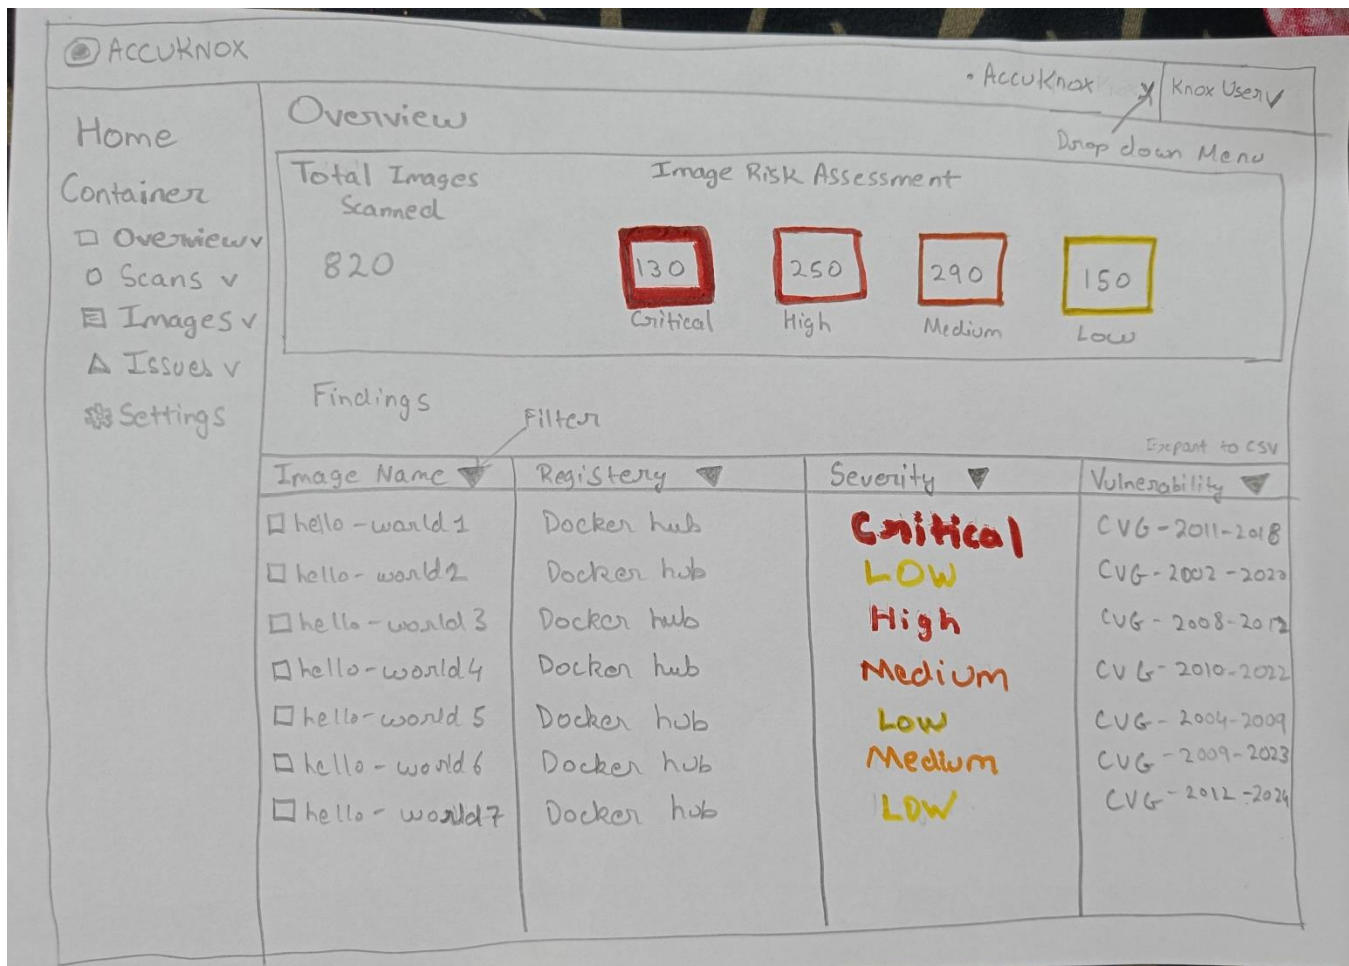 ACCUKNOX
• AccuKnox
Knox User
Drop down Menu
Home
Container
Overview
Scans
Images
Issues
Settings
Overview
Total Images
Scanned
820
Image Risk Assessment
130
250
290
150
Critical
High
Medium
Low
Findings
Filter
Export to CSV
Image Name
Registery
Severity
Vulnerability
hello-world1 Docker hub Critical CVG-2011-2018
hello-world2 Docker hub LOW CVG-2002-2020
hello-world 3 Docker hub High CVG-2008-2012
hello-world4 Docker hub Medium CVG-2010-2022
hello-world 5 Docker hub Low CVG-2004-2009
hello-world6 Docker hub Medium CVG-2009-2023
hello-world7 Docker hub LOW CVG-2012-2024